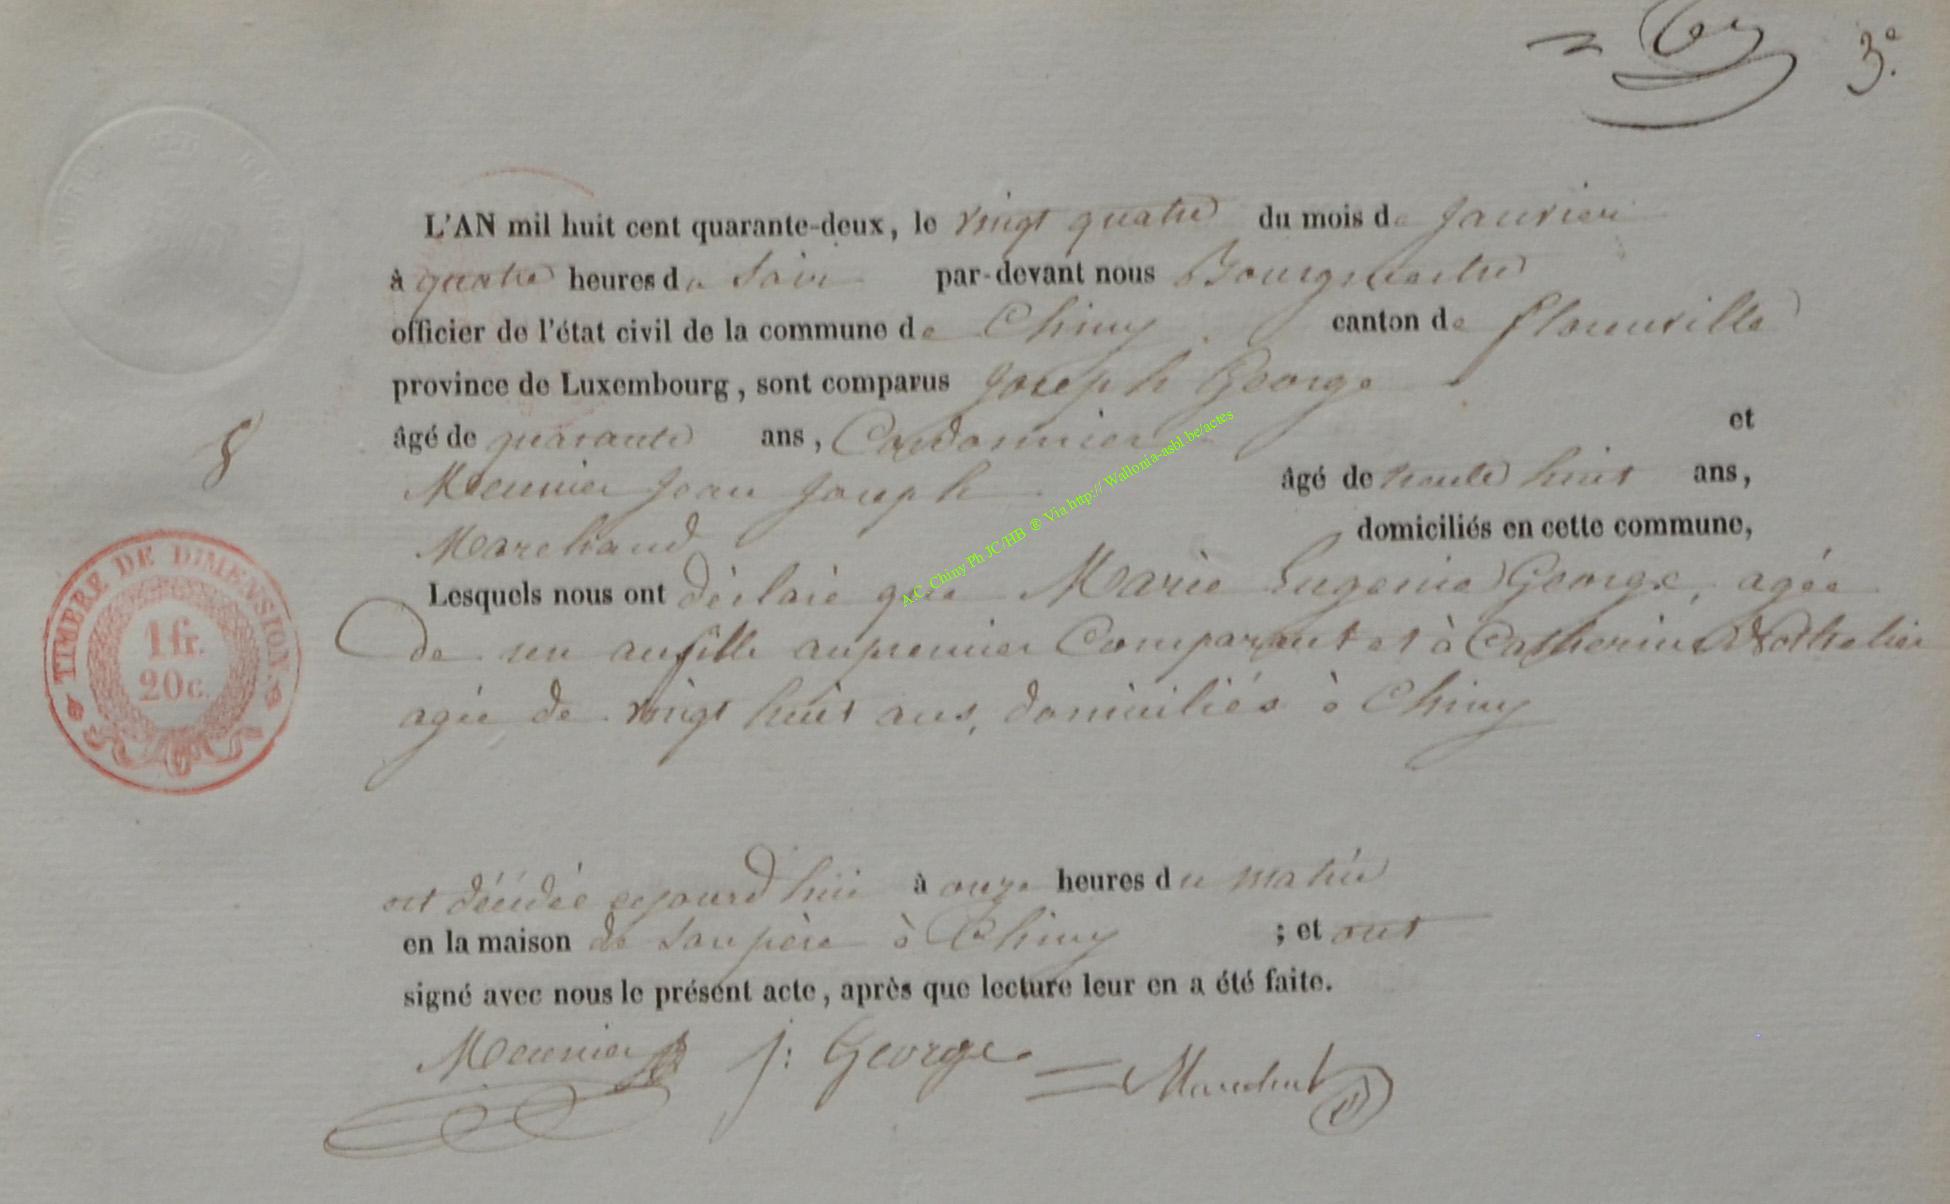 3.e
L'AN mil huit cent quarante-deux, le vingt quatre du mois de Janvier
à quatre heures du Soir par-devant nous Bourgmestre
officier de l'état civil de la commune de Chiny canton de florenville
province de Luxembourg, sont comparus Joseph George
âgé de quarante ans, Cordonnier et
8
Meunier Jean Joseph âgé de trente huit ans,
Marchand domiciliés en cette commune,
Lesquels nous ont déclaré que Marie Eugenie George, agée
de un an fille au premier Comparant et à Catherine
agée de vingt huit ans, domiciliés à Chiny
TIMBRE DE DIMENSION.
1 fr.
20 c.
est décédée aujourd'hui à onze heures du matin
en la maison de son père à Chiny ; et ont
signé avec nous le présent acte, après que lecture leur en a été faite.
Meunier J: George
A.C. Chiny Ph JC/HB ® Via http:// Wallonia-asbl.be/actes